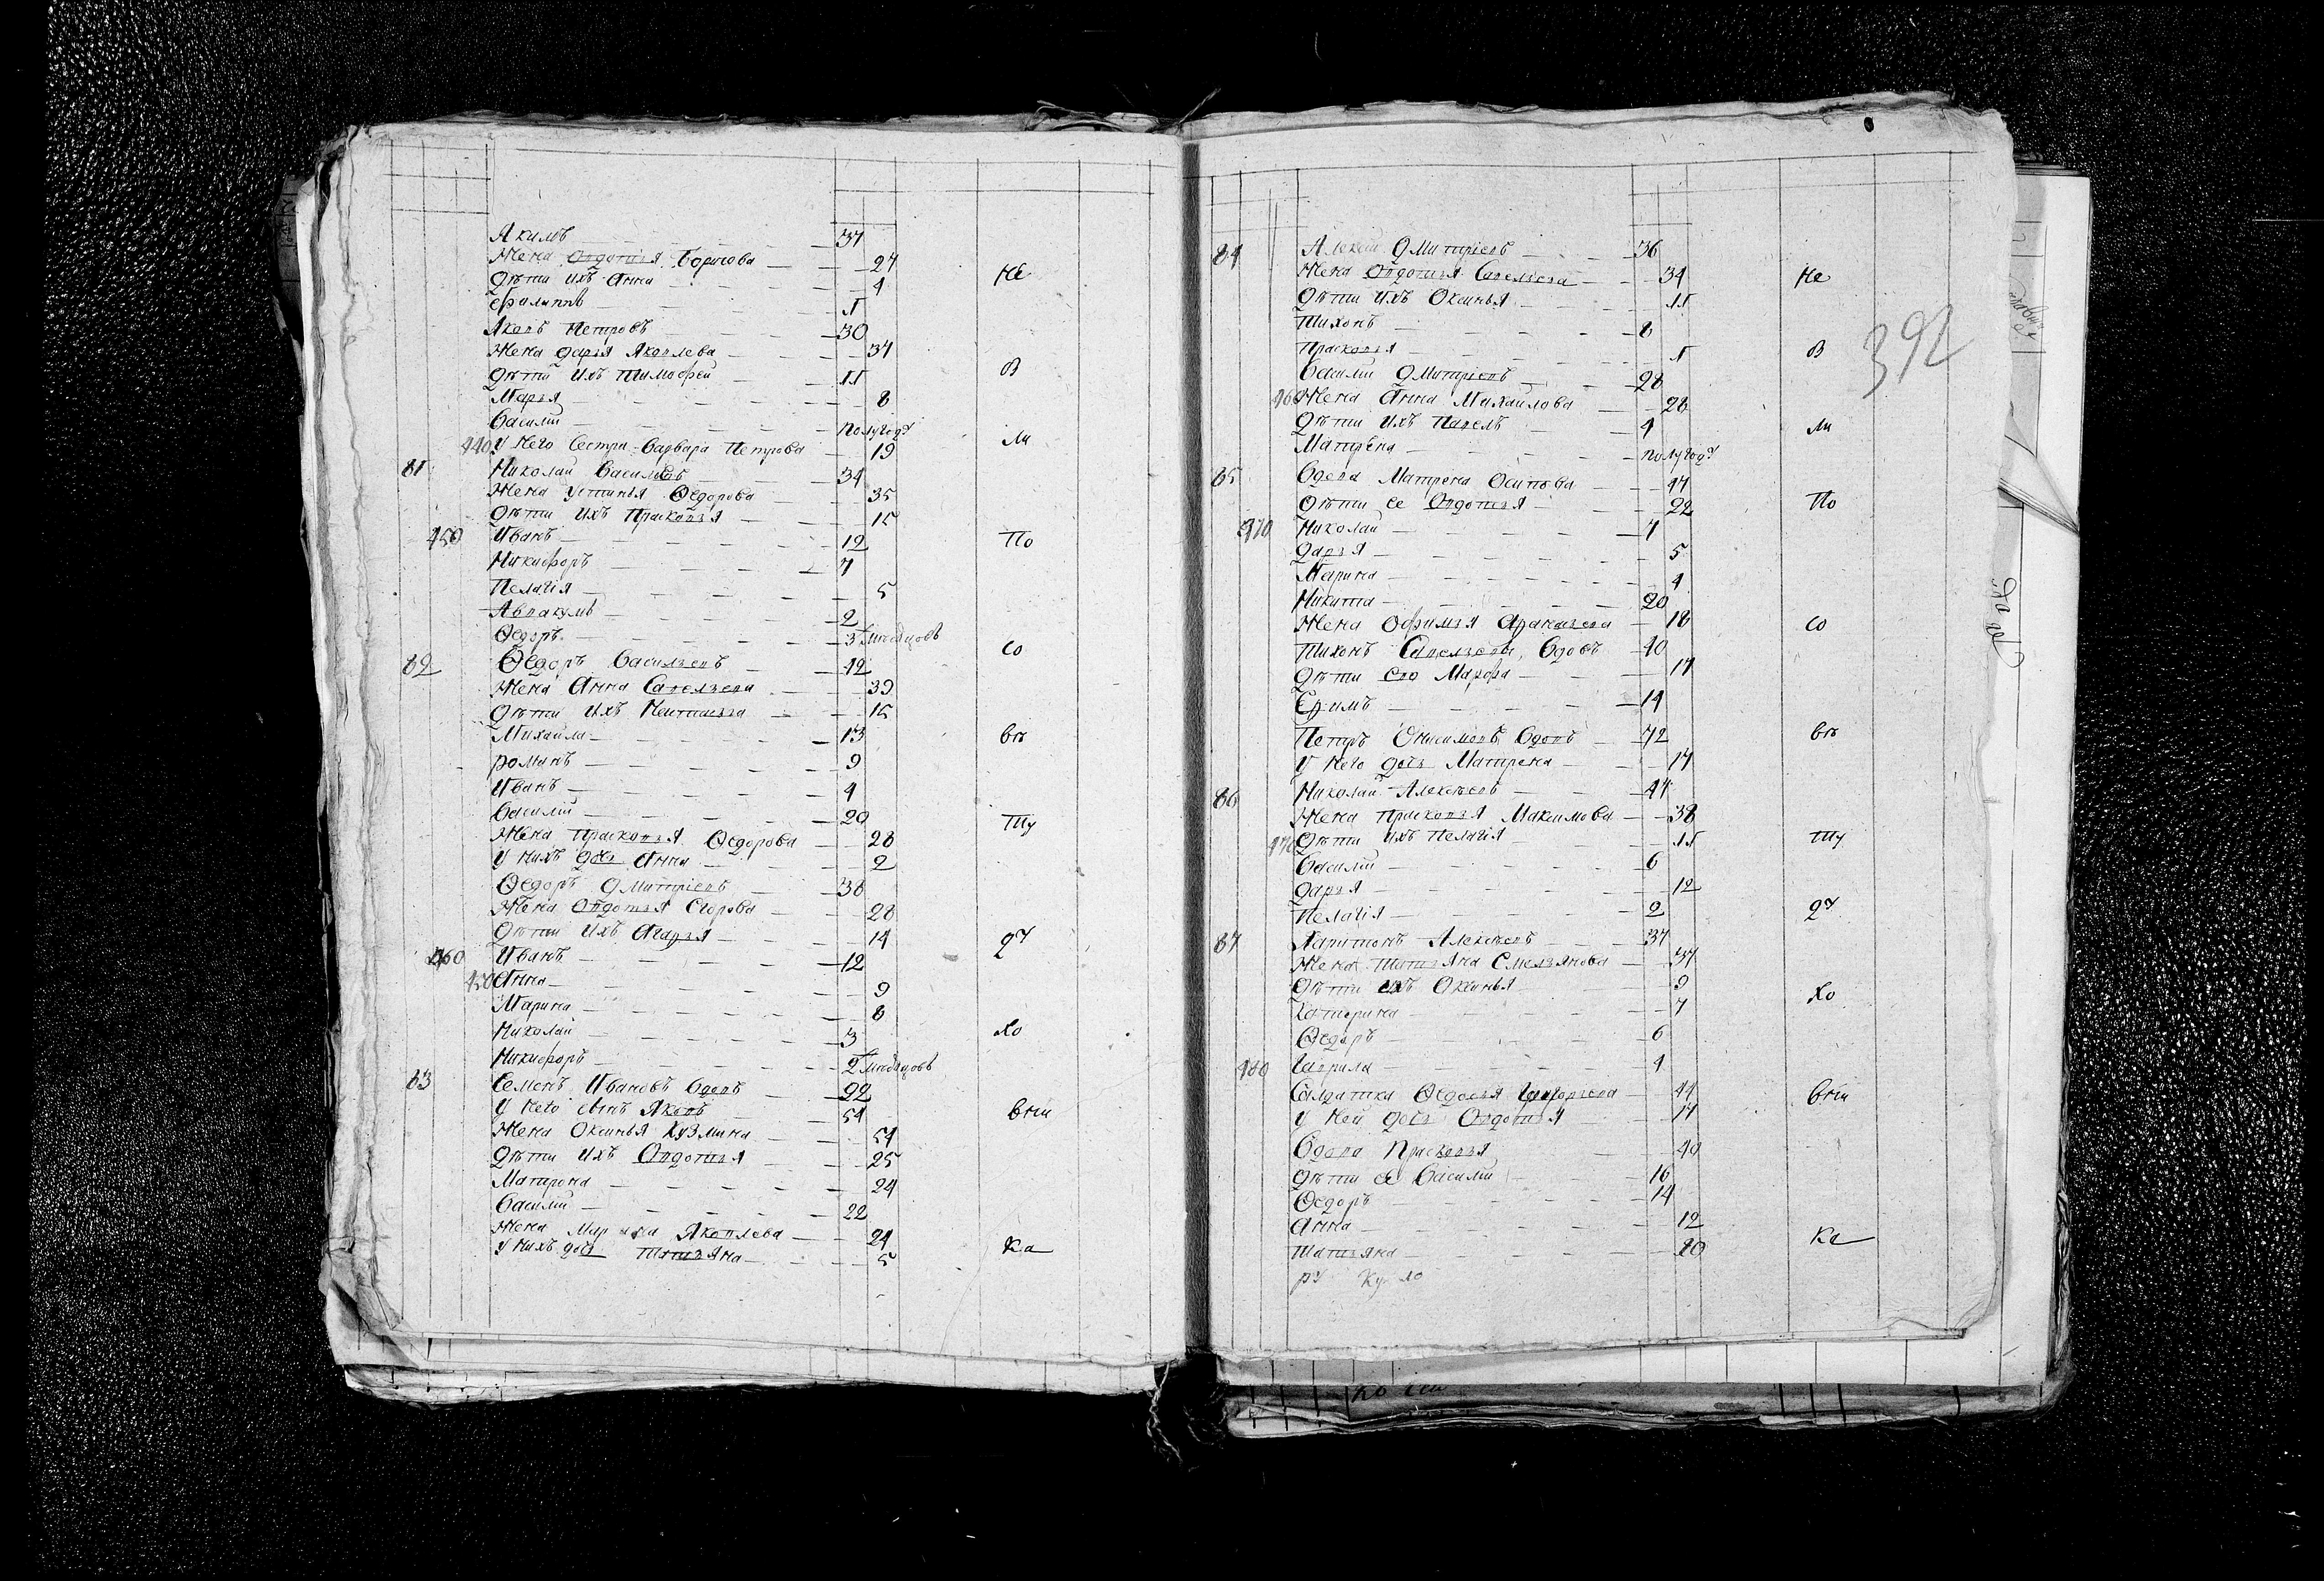 Акимъ 37
Жена Овдотья Борисова 27
Дѣти ихъ Анна 4
Филиппъ
Яковъ Петровъ 30
Жена Дарья Яковлева 37
Дѣти ихъ Тимофей 11
Марья 8
Василий полугоду
440 У него сестра Варвара Петрова 19
81 Николай Васильевъ 34
Жена Устинья Ѳедорова 35
Дѣти ихъ Прасковья 15
450 Иванъ 12
Никифоръ 7
Пелагія 5
Авакумъ 2
Ѳедоръ 3 месяцовъ
82 Ѳедоръ Васильевъ 42
Жена Анна Савельева 39
Дѣти ихъ 15
Михайла 13
романъ 9
Иванъ 4
Василий 20
Жена Прасковья Ѳедорова 28
У нихъ дочь Анна 2
Ѳедоръ Дмитріевъ 38
Жена Овдотья Егорова 28
Дѣти ихъ Агафья 14
460 Иванъ 12
450 Анна 9
Марина 8
Николай 3
Никифоръ 2 месяцовъ
83 Семенъ Ивановъ Вдовъ 92
У него сынъ Яковъ 54
Жена Оксинья Кузмина 54
Дѣти ихъ Овдотья 25
Матрона 24
Василий 22
Жена Марина Яковлева 24
У нихъ дочь Татьяна 5
Не
В
ли
По
со
вѣ
Ту
ду
Хо
вни
Ка
392
84 Алексей Дмитріевъ 36
Жена Овдотья Савельева 34
Дѣти ихъ Оксинья 11
Тихонъ 8
Прасковья
Василий Дмитріевъ 28
460 Жена Анна Михайлова 28
Дѣти ихъ Павелъ 4
Матрена полугоду
85 Вдова Матрена Осипова 47
Дѣти ее Овдотья 22
470 Николай 7
Дарья 5
Марина 4
Никита 20
Жена Офимья 18
Тихонъ Савельевъ Вдовъ 40
Дѣти ево Марфа 17
Ефимъ 14
Петръ Онисимовъ Вдовъ 72
У него дочь Матрена 17
86 Николай Алексѣевъ 44
Жена Прасковья Максимова 38
470 Дѣти ихъ Пелагія 11
Василий 6
Дарья 12
Пелагія 2
87 Харитонъ Алексѣевъ 37
Жена Татьяна Емельянова 37
Дѣти ихъ Оксинья 9
Катерина 7
Ѳедоръ 6
480 Гаврила 4
Салдатка Ѳедосья Григорьева 44
У ней дочь Овдотья 17
Вдова Прасковья 40
Дѣти ее Василий 16
Ѳедоръ 14
Анна 12
Татьяна 20
ру
Не
В
ли
По
со
вѣ
Ту
ду
Хо
вни
Ка